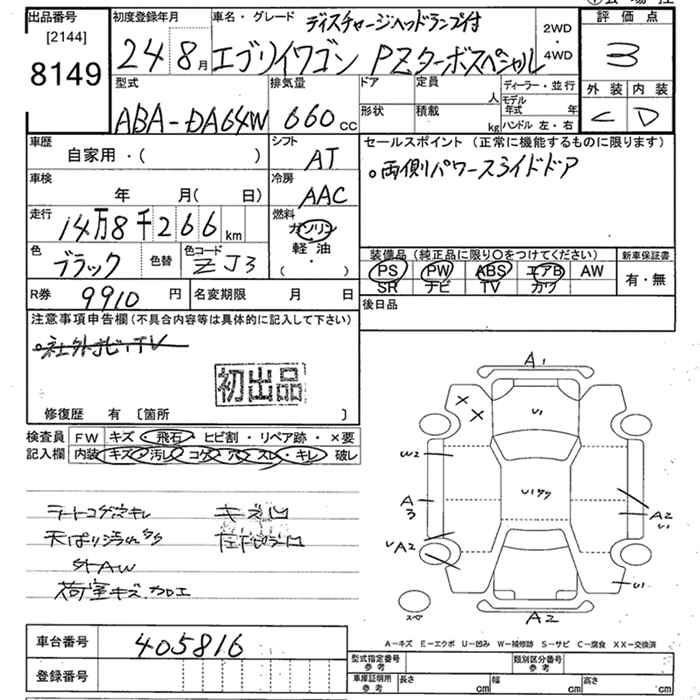 出品番号 初度登録年月 車名・グレード ディスチャージヘッドランプ付 2WD・4WD 評価点
[2144]
8149 24 8月 エブリイワゴン PZターボスペシャル 3
型式 排気量 ドア 定員 人 ディーラー・並行 外装 内装
ABA-DA64W 660cc 形状 積載 kg モデル年式 年 C D
ハンドル 左・右
車歴 自家用・( ) シフト AT セールスポイント (正常に機能するものに限ります)
。両側パワースライドドア
車検 年 月( 日) 冷房 AAC
走行 14万8千266km 燃料 ガソリン
軽油
( ・ )
色 ブラック 色替 色コード ZJ3 装備品 (純正品に限り○をつけてください) 新車保証書
PS PW ABS エアB AW 有・無
SR ナビ TV カワ
R券 9910円 名変期限 月 日 後日品
注意事項申告欄 (不具合内容等は具体的に記入して下さい)
。社外ナビ、TV
初出品
修復歴 有 [箇所 ]
検査員 FW キズ・飛石・ヒビ割・リペア跡・×要
記入欄 内装 キズ・汚レ・コゲ・穴・スレ・キレ・破レ
シートコゲ穴キレ キズ凹
外AW
荷室キズ.加工
A1
U1
W2
A3
A2
U1
A2
U1
スペ
A2
A-キズ E-エクボ U-凹み W-補修跡 S-サビ C-腐食 XX-交換済
車台番号 405816
登録番号
型式指定番号 参考 類別区分番号 参考
車庫証明用 参考 長さ cm 幅 cm 高さ cm